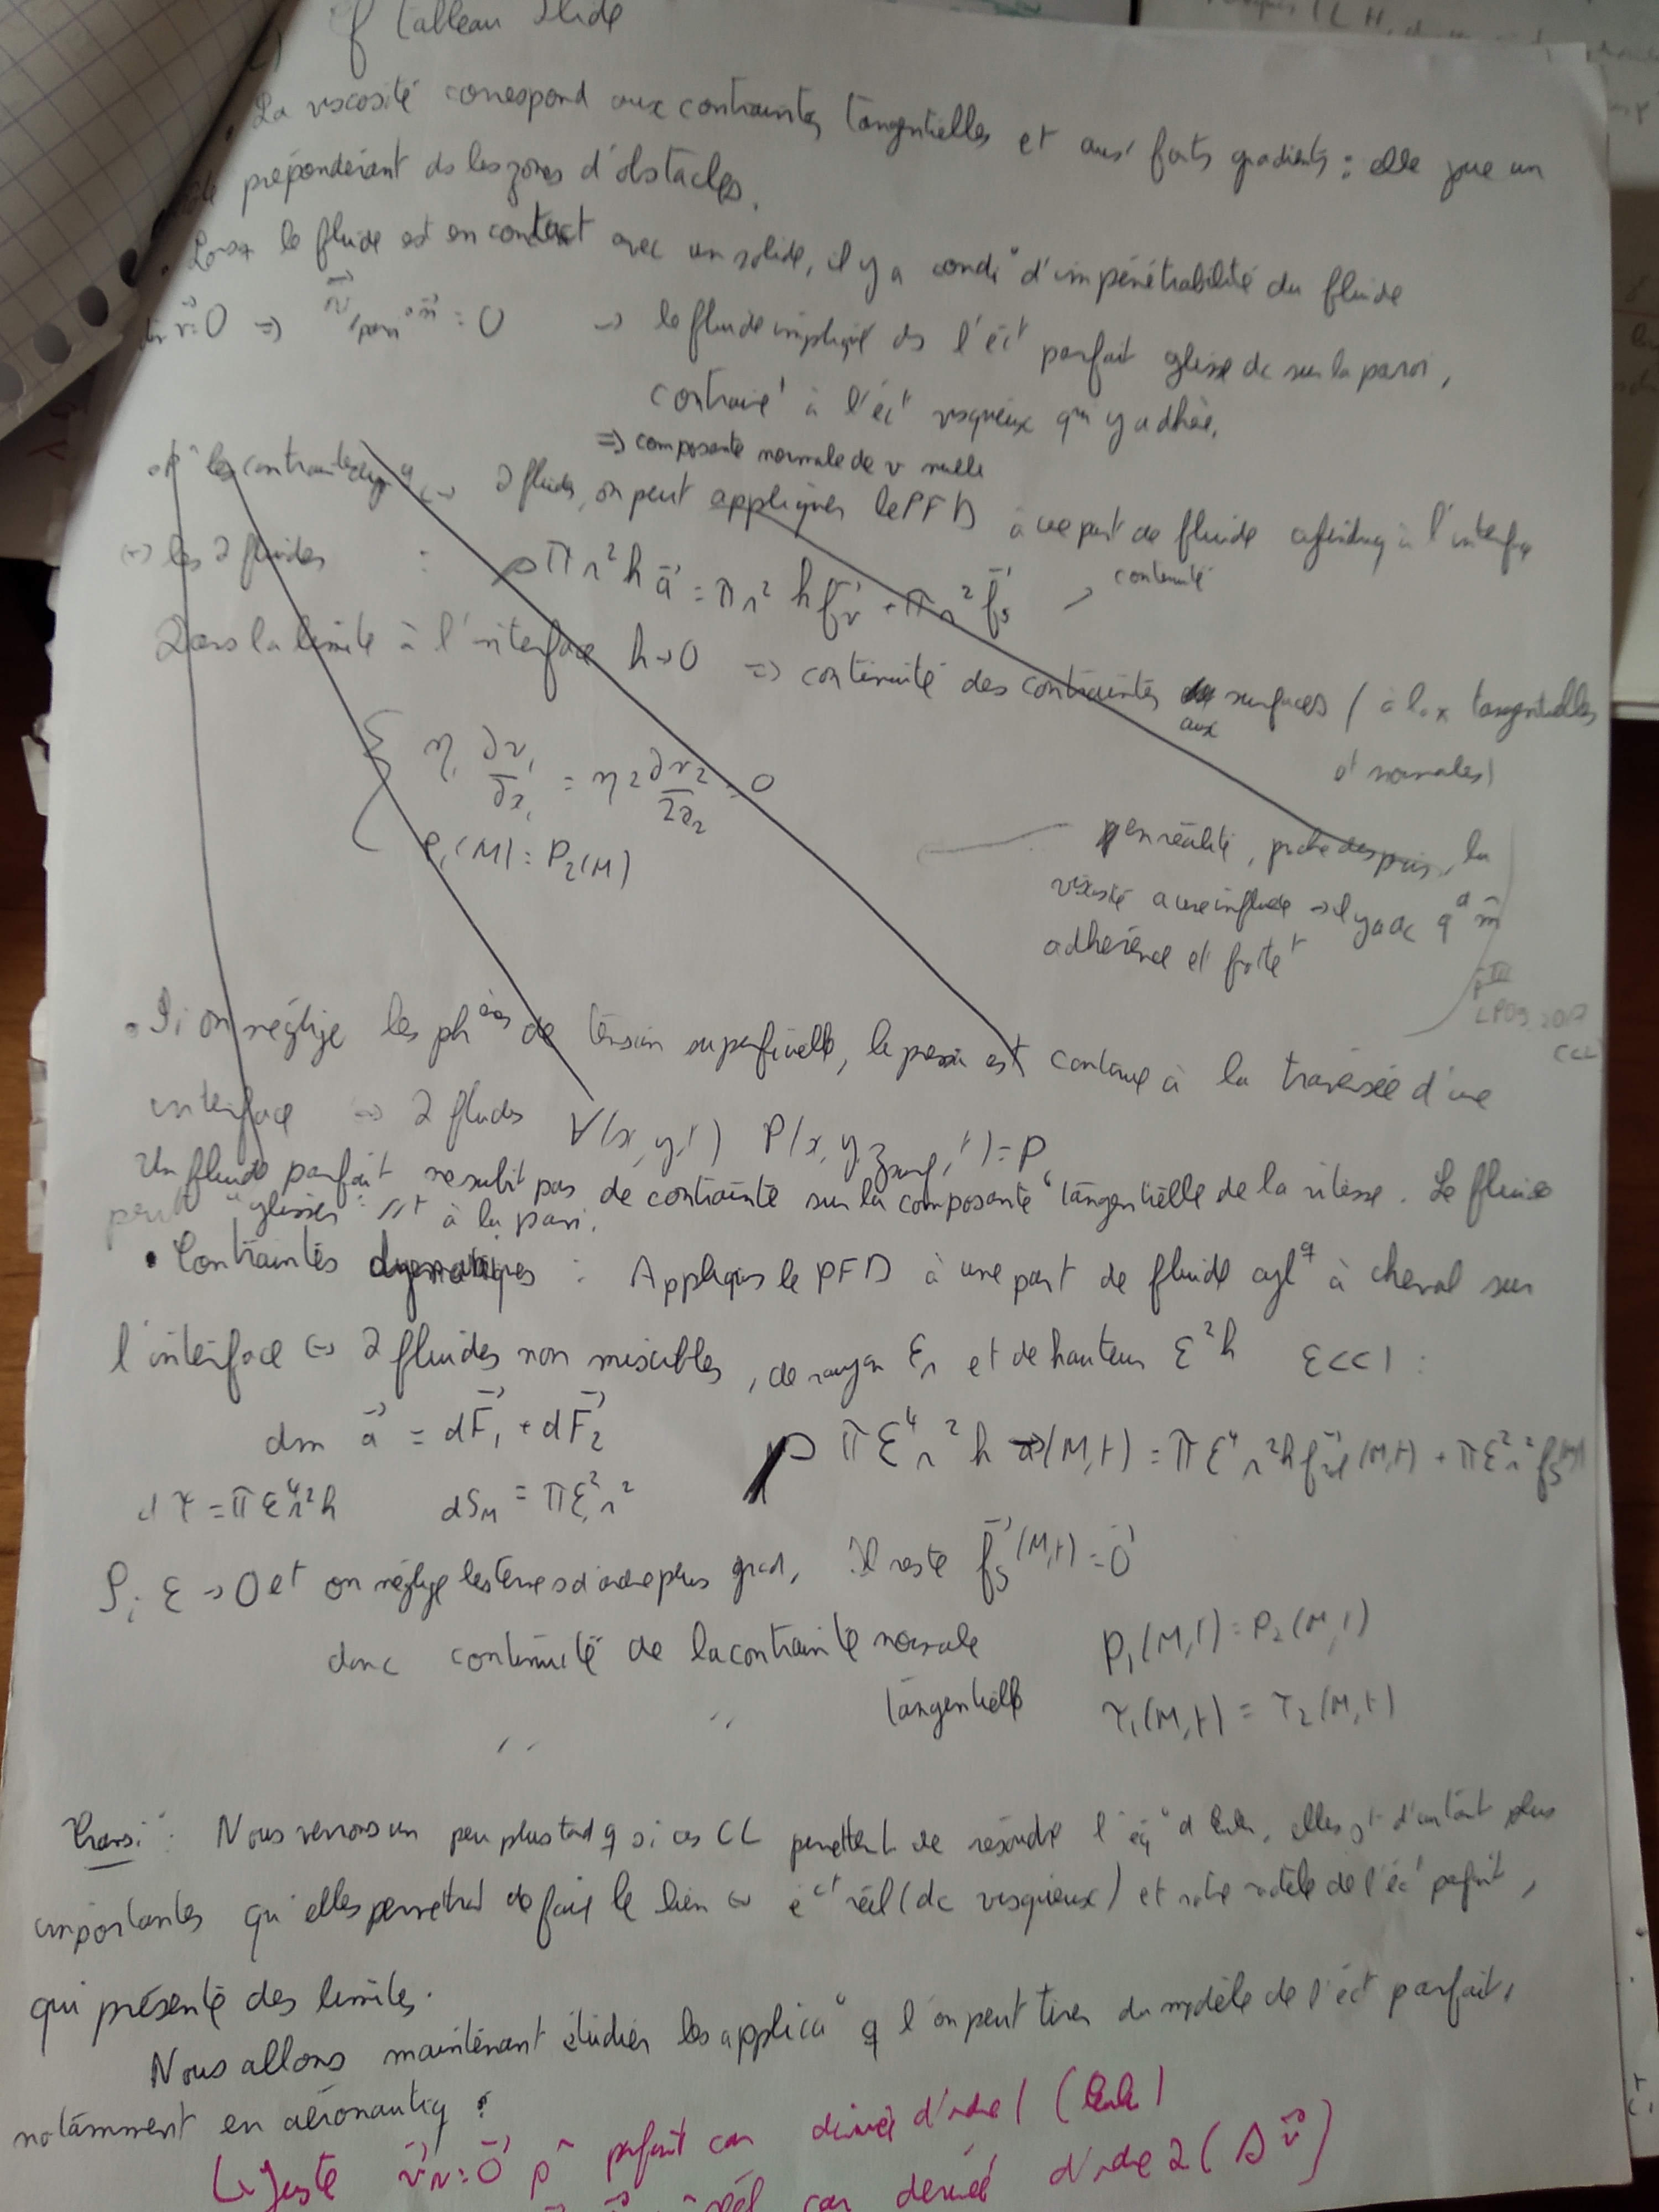 cf tableau slide
La viscosité correspond aux contraintes tangentielles et aux forts gradients : elle joue un
rôle prépondérant ds les zones d'obstacles.
le fluide est en contact avec un solide, il y a condi° d'impénétrabilité du fluide
=> v⃗/paroi · n⃗ = 0 → le fluide impliqué ds l'éct parfait glisse dc sur la paroi,
contrairet à l'éct visqueux qui y adhère.
=> composante normale de v nulle
les contraintes dynq <-> 2 fluides, on peut appliquer le PFD à une part de fluide cylindrq à l'interface
<-> les 2 fluides : ρπr²h a⃗ = πr²h f⃗v + πr² f⃗s → continuité
Dans la limite à l'interface h→0 => continuité des contraintes aux surfaces (à la x tangentielles
et normales)
η₁ ∂v₁/∂z₁ = η₂ ∂v₂/∂z₂ = 0
P₁(M) = P₂(M)
en réalité, proche des parois, la
viscosité a une influence → il y a dc qd m̂
adhérence et frottet
LP09 2017
(CL)
• Si on néglige les phènes de tension superficielle, la pression est continue à la traversée d'une
interface <-> 2 fluides ∀(x,y,t) P(x,y,zsurf,t) = P₀
Un fluide parfait ne subit pas de contrainte sur la composante tangentielle de la vitesse. Le fluide
peut "glisser" //t à la paroi.
• Contraintes dynamiques : Appliquons le PFD à une part de fluide cylq à cheval sur
l'interface <-> 2 fluides non miscibles, de rayon εr et de hauteur ε²h ε<<1 :
dm a⃗ = dF⃗₁ + dF⃗₂ ρπε⁴r²h a⃗(M,t) = πε⁴r²h f⃗vol(M,t) + πε²r² f⃗s(M,t)
dτ = πε⁴r²h dS_M = πε²r²
Si ε→0 et on néglige les termes d'ordre plus grand, Il reste f⃗s(M,t) = 0⃗
donc continuité de la contrainte normale P₁(M,t) = P₂(M,t)
" " tangentielle τ₁(M,t) = τ₂(M,t)
Transi° : Nous verrons un peu plus tard q si ces CL permettent de résoudre l'éq° d'Euler, elles st d'autant plus
importantes qu'elles permettront de faire le lien <-> éct réel (dc visqueux) et notre modèle de l'éct parfait,
qui présente des limites.
Nous allons maintenant étudier les applica° q l'on peut tirer du modèle de l'éct parfait,
notamment en aéronautiq.
↳ Juste v⃗N = 0⃗ pr parfait car dérivée d'ordre 1 (Euler)
réel car dérivée d'ordre 2 (Δv⃗)